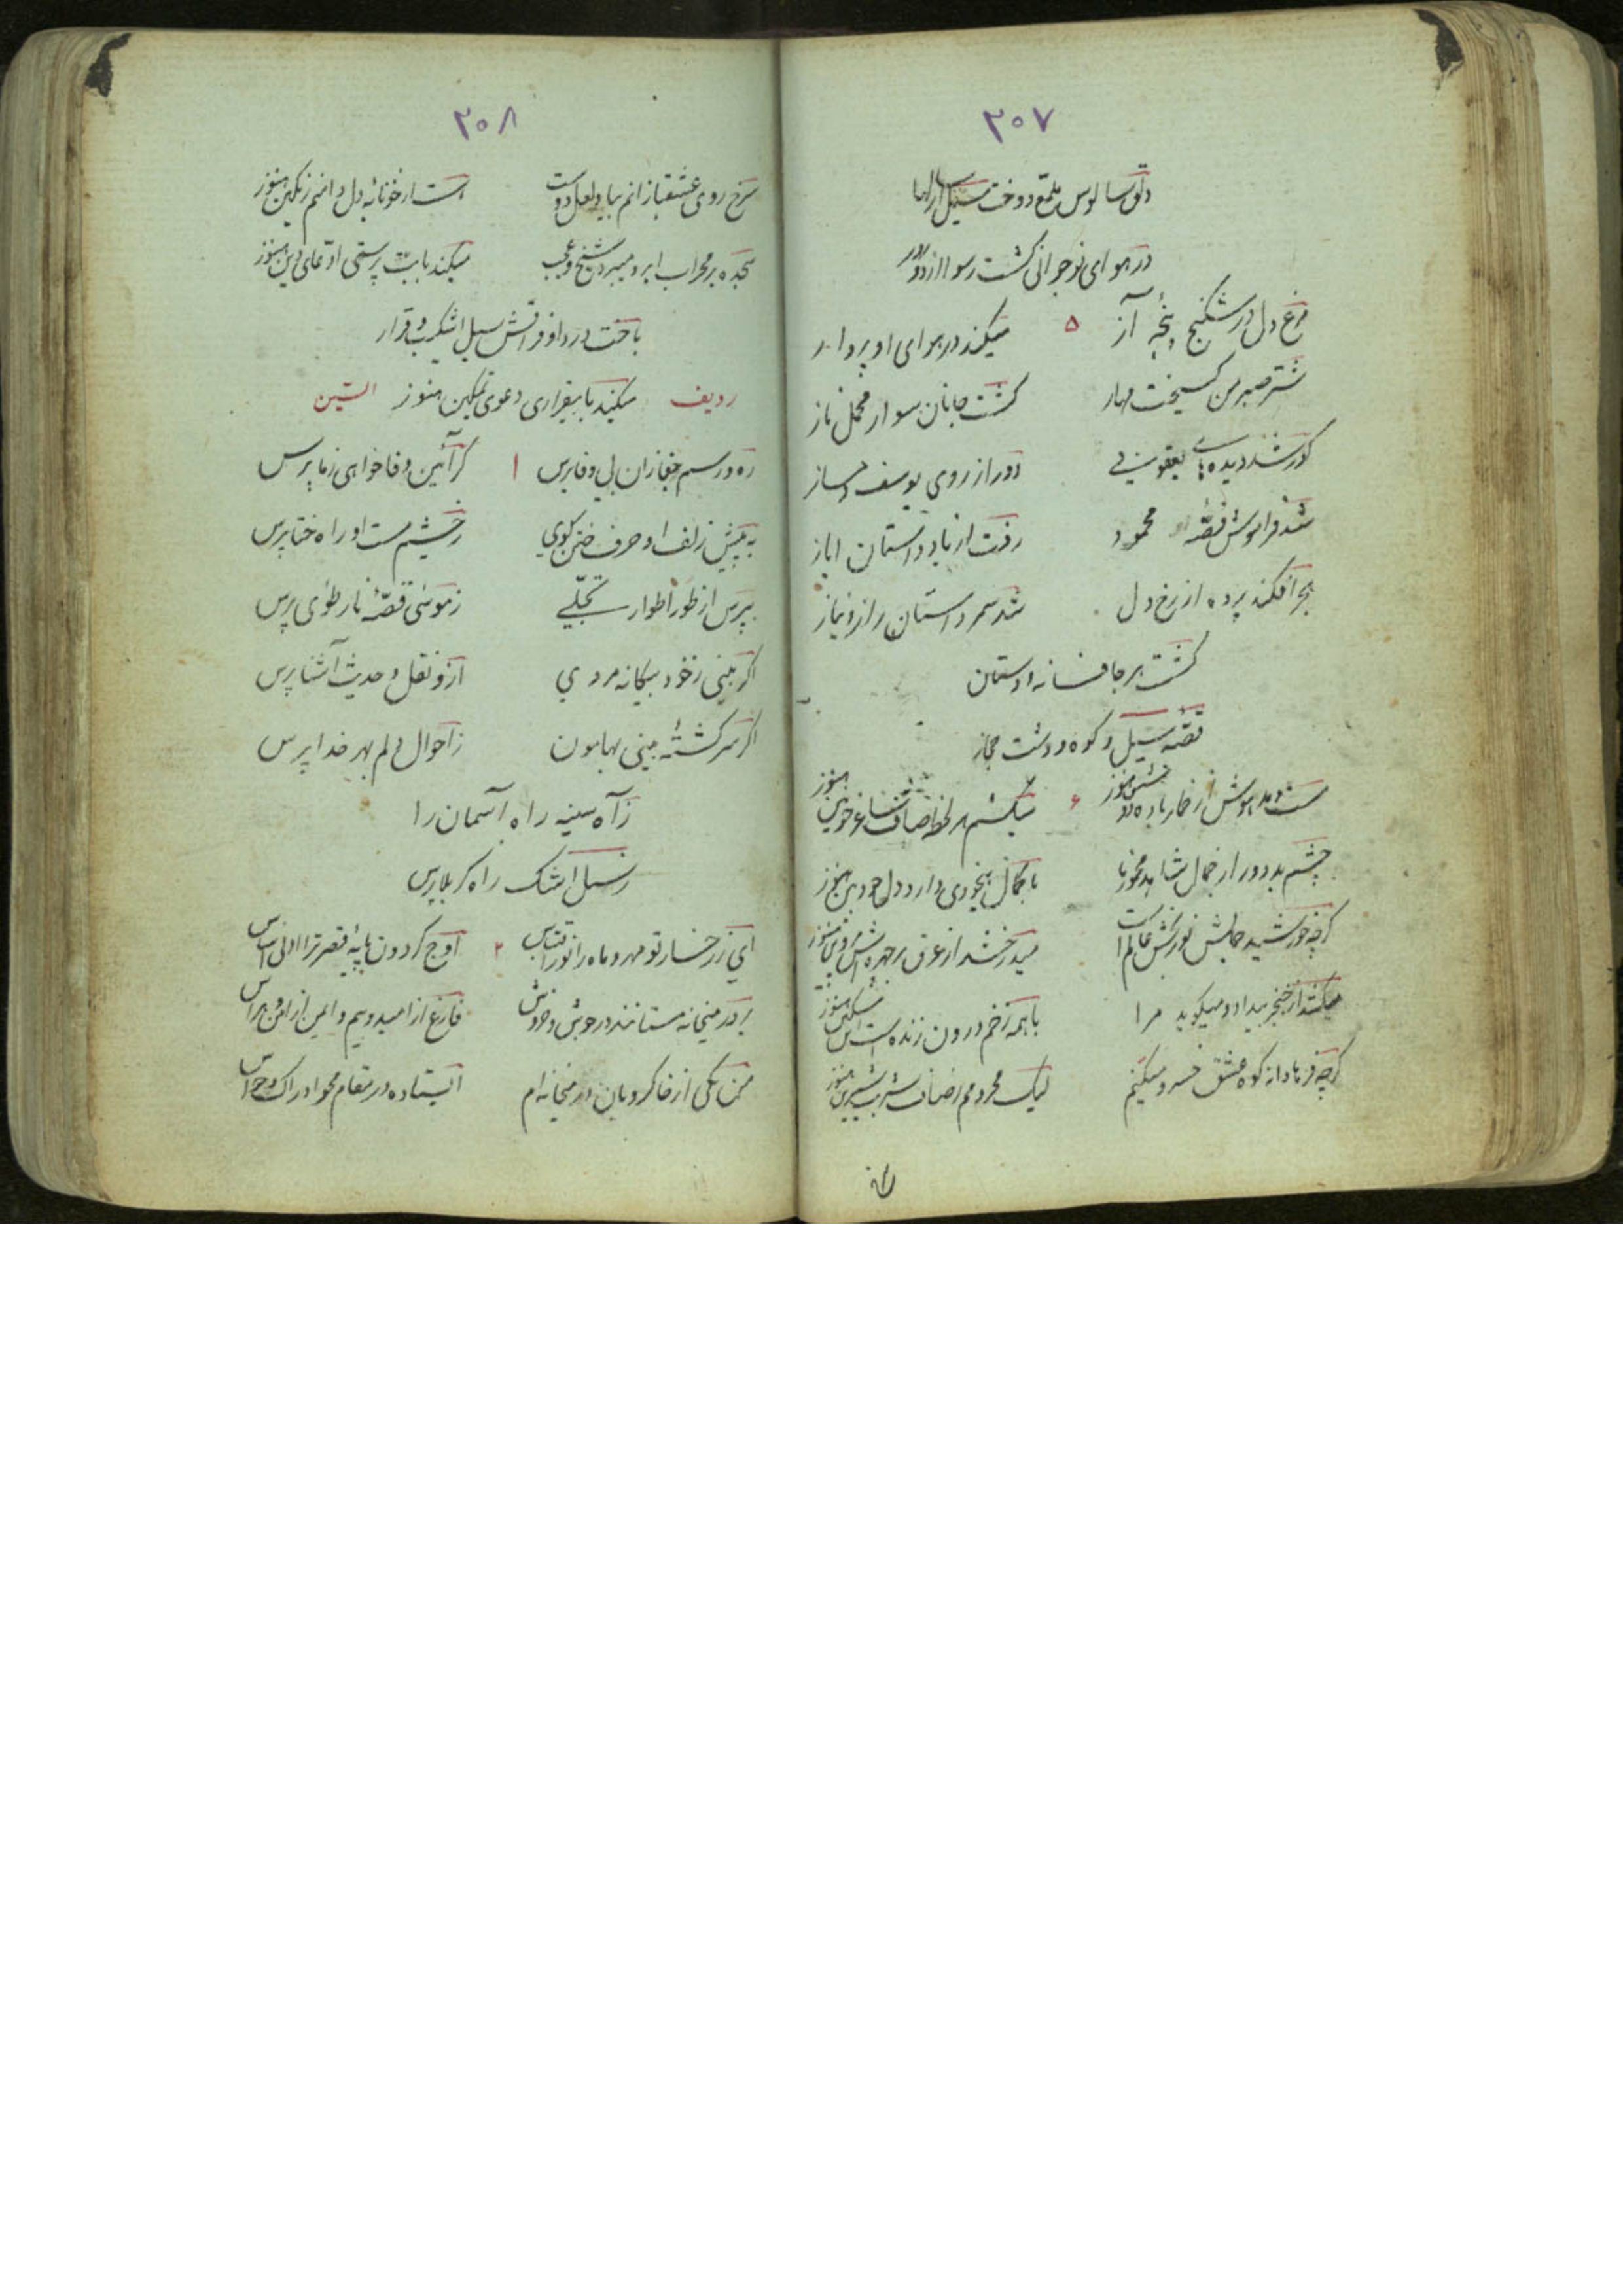 ۳۰۷
دلق سالوس ملمع دوخت سیل سالها
در هوای نوجوانی گشت رسوا
مرغ دل در شکنج پنجه آز ۵ میکند در هوای او پرواز
شتر صبر من گسیخت مهار گشت جانان سوار محمل ناز
کور شد دیده‌های یعقوب دور از روی یوسف دمساز
شد فراموش قصه محمود رفت از یاد داستان ایاز
هجر افکند پرده از رخ دل شد سمر داستان راز و نیاز
گشت بر جا فسانه دوستان
قصه سیل و کوه و دشت حجاز
مست و مدهوش از خمار باده هنوز ۶ میکشم هر لحظه صاف هنوز
چشم بد دور از جمال شاهد مخمور با کمال بیخودی دارد دل هنوز
گرچه خورشید جمالش عالم میدرخشد از عرق بر چهره هنوز
میکشد از خنجر بیداد و میگوید مرا با همه زخم درون زنده است این هنوز
گرچه فرهادانه کوه عشق خسرو میکنم لیک محرومم ز صاف شربت شیرین هنوز
۳۰۸
سرخ روی عشقبازانم بیاد لعل دوست است از خونابه دل دامنم رنگین هنوز
سجده بر محراب ابرو میبرد شیخ و عجب میکند با بت پرستی ادعای دین هنوز
باخت در دور فراقش سیل اشک قرار
میکند با بیقراری دعوی تمکین هنوز ردیف السین
ره و رسم جفا زان بی وفا پرس ۱ گر آئین وفا خواهی ز ما پرس
به پیش زلف او حرف ختن گوی ز چشم مست او راه ختا پرس
بپرس از طور اطوار تجلی ز موسی قصه نار طوی پرس
اگر بینی ز خود بیگانه مردی ازو نقل و حدیث آشنا پرس
اگر سرگشته بینی بهامون ز احوال دلم بهر خدا پرس
ز آه سینه راه آسمان را
ز سیل اشک راه کربلا پرس
ای ز رخسار تو مهر و ماه را نور اقتباس ۲ اوج گردون پایه قصر ترا ادنی اساس
بر در میخانه مستانند در جوش و خروش فارغ از امید و بیم و ایمن از امن و هراس
من یکی از خاکروبان در میخانه‌ام ایستاده در مقام محو ادراک و حواس